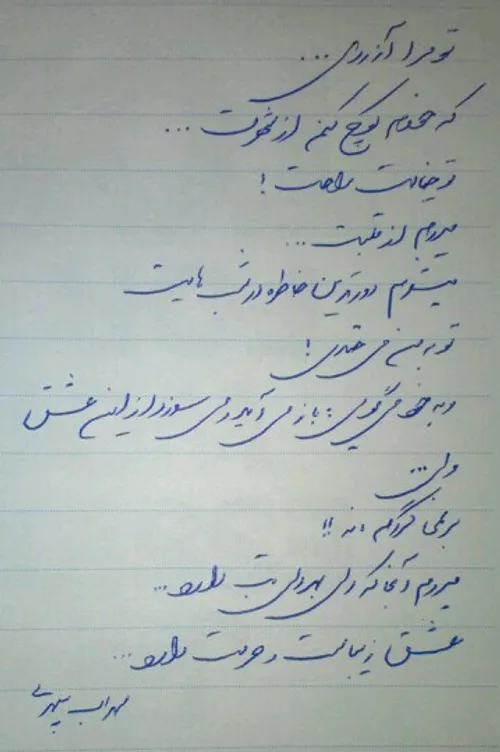 تو مرا آزردی ...
که خودم کوچ کنم از شهرت ...
تو خیالت راحت !
میروم از قلبت ...
میشوم دورترین خاطره در شب هایت
تو به من می خندی !
و به خود می گویی : باز می آید و می سوزد از این عشق
ولی ...
بر نمی گردم ، نه !!
میروم آنجا که دلی بهر دلی تب دارد ...
عشق زیباست و حرمت دارد ...
سهراب سپهری